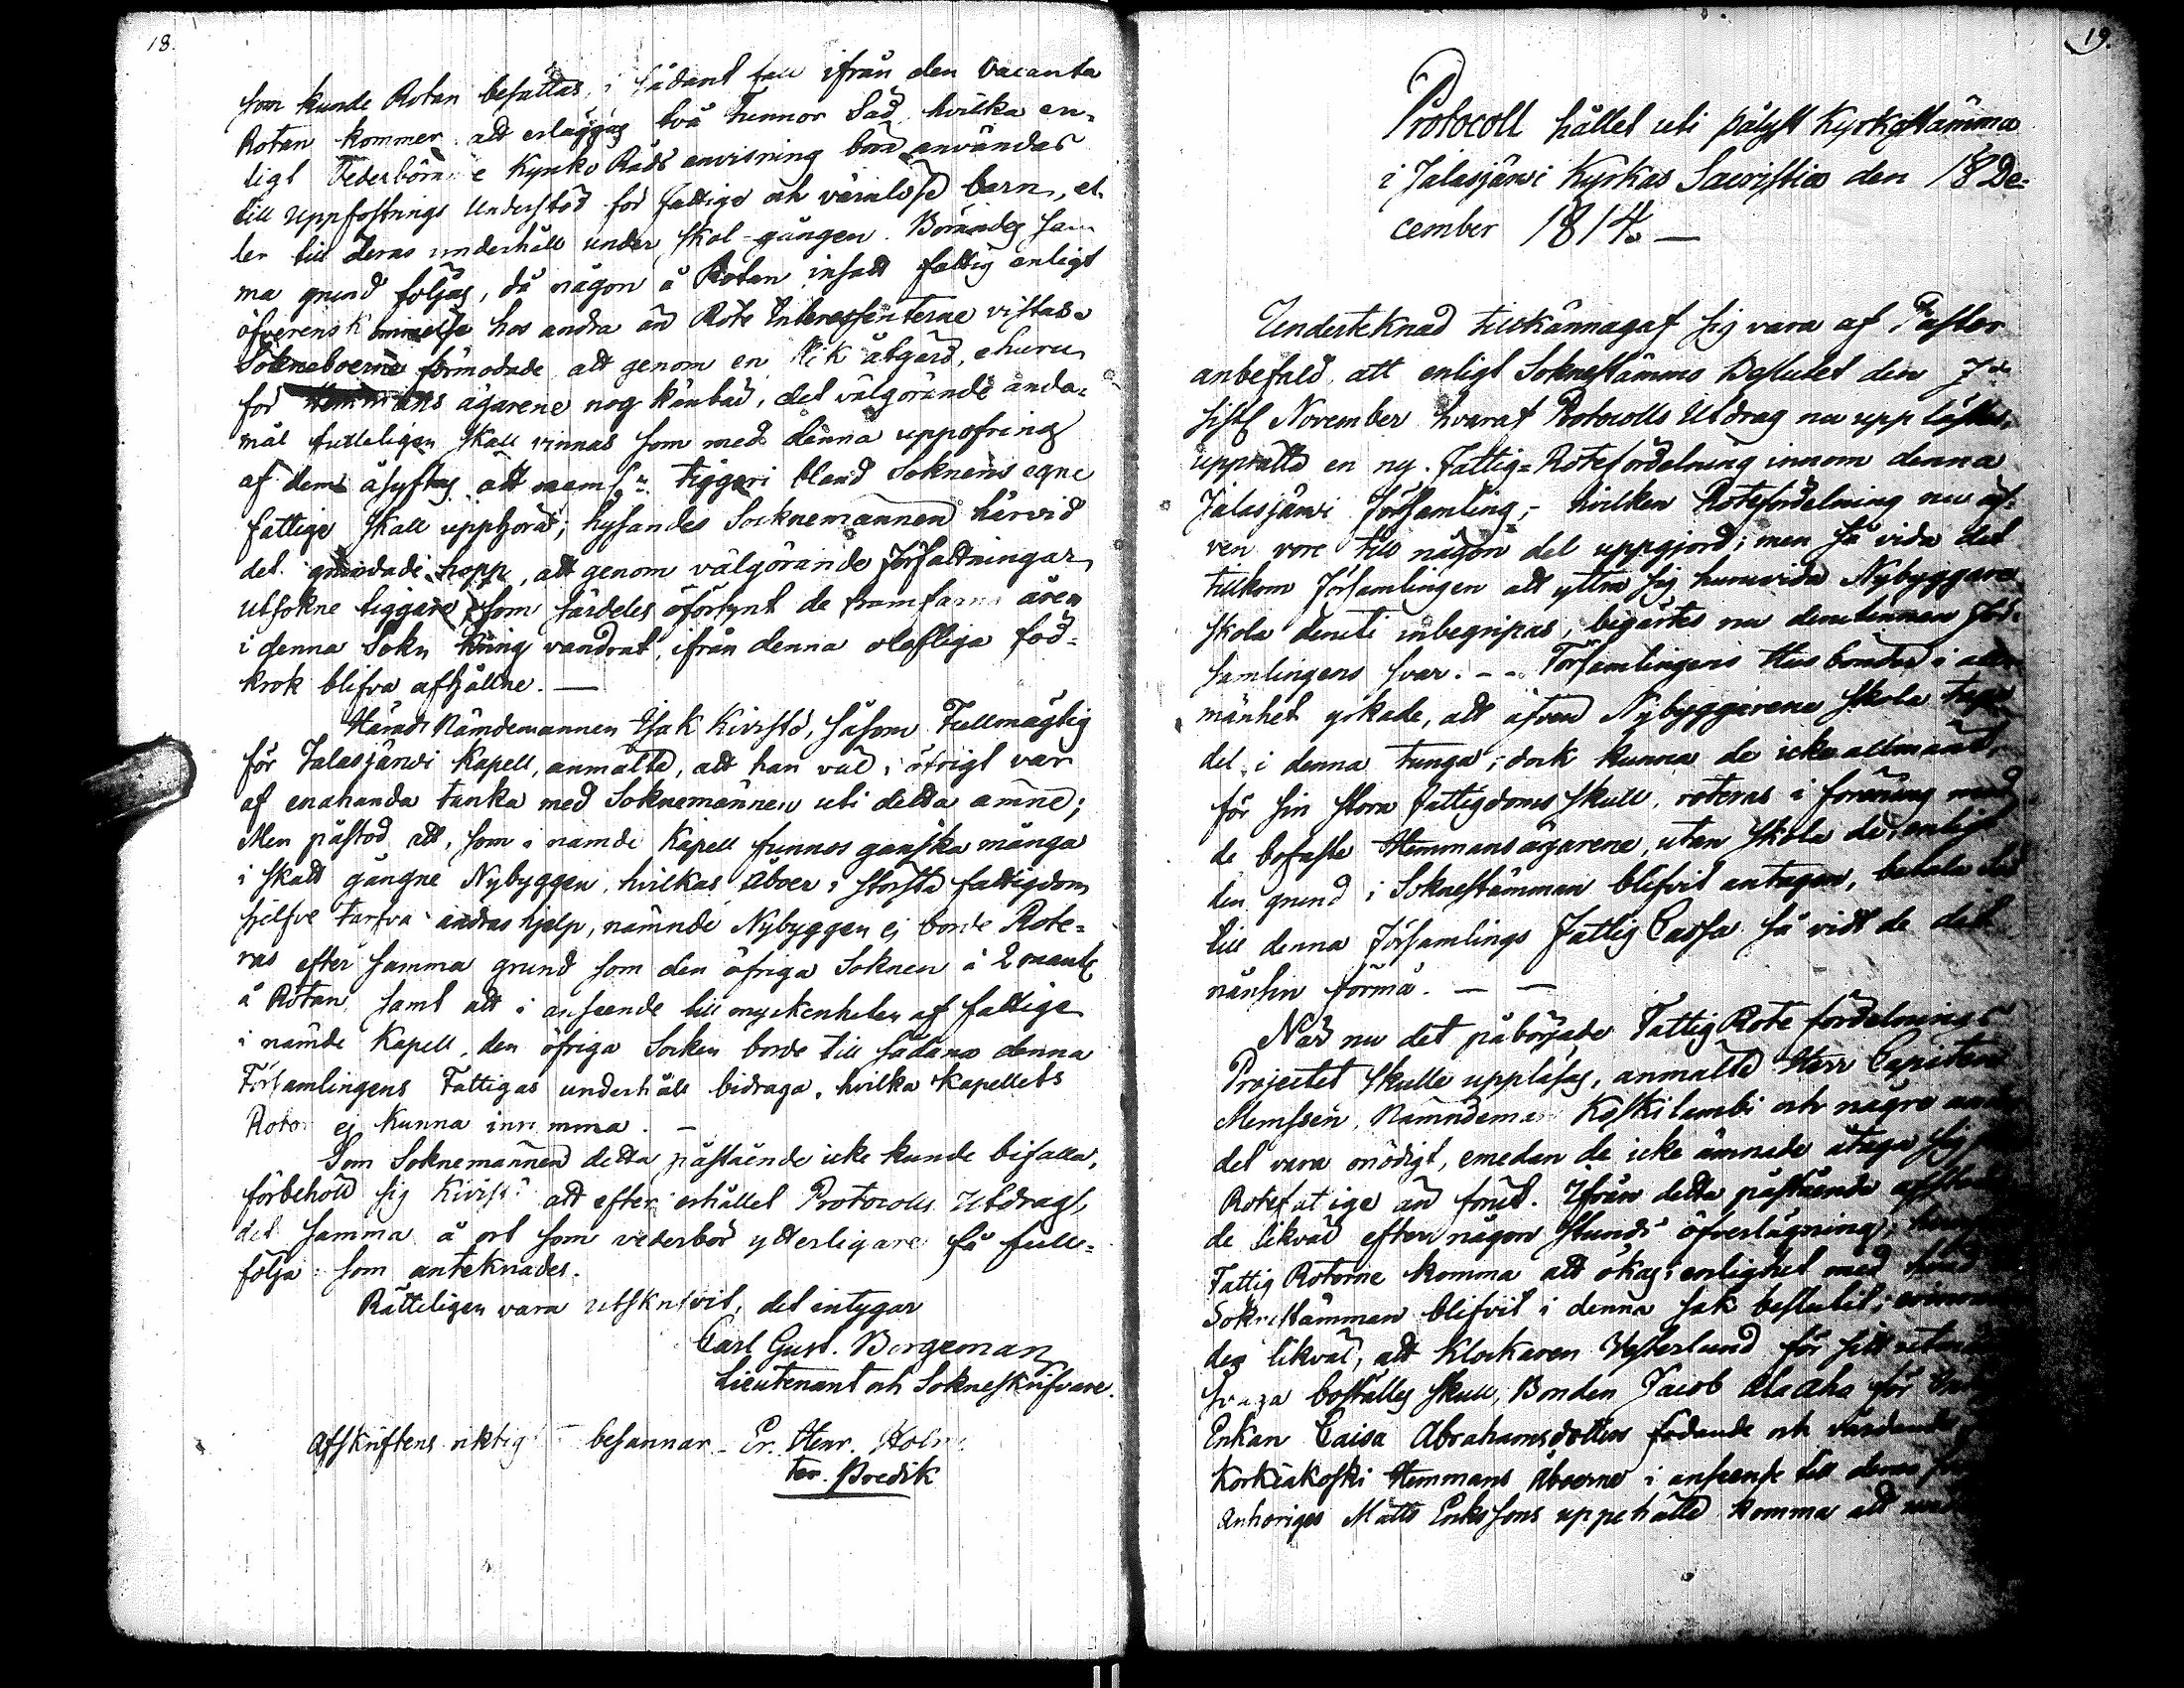 18.
som kunde Rotan besättas, i sådant fall ifrån den vacanta
Rotan kommer att erläggas två Tunnor Säd, hvilka en-
ligt Vederbörande Kyrko Råds anvisning böra användas
till Uppfostrings Understöd för fattige och värnlöse barn, el-
ler till deras underhåll under skol-gången. Börandes sam-
ma grund följas, då någon å Rotan insatt fattig enligt
öfverenskommelse hos andra än Rote Interessenterne vistas.
Sokneboerne förmodade att genom en slik åtgärd, ehuru
för Hemmans ägarene nog känbar, det välgörande ända-
mål fulleligen skall vinnas som med denna uppofring
af dem åsyftas att neml:n tiggeri bland Soknens egne
fattige skall upphöra; hysandes Socknemännen härvid
det grundade hopp, att genom välgörande Författningar
utsokne tiggare som särdeles oförsynt de framfarna åren
i denna Sokn kring vandrat, ifrån denna olofliga fod-
krok blifva afhållne. —
Härads Nämdemannen Isak Kivistö, såsom Fullmägtig
för Jalasjärvi Kapell, anmälte, att han väl i öfrigt var
af enahanda tanka med Soknemännen uti detta ämne;
Men påstod att, som i nämde Kapell funnos ganska många
i skatt gångne Nybyggen, hvilkas Åboer i största fattigdom
sjelfve tarfva andras hjelp, nämnde Nybyggen ej borde Rote-
ras efter samma grund som den öfriga Soknen à 2 mantl
å Rotan, samt att i anseende till myckenheten af fattige
i nämde Kapell, den öfriga Socken borde till sådana denna
Församlingens Fattigas underhåll bidraga, hvilka Kapellets
Rotor ej kunna inrymma. —
Som Soknemännen detta påstående icke kunde bifalla,
förbehöld sig Kivistö att efter erhållet Protocolls Utdrag,
det samma å ort som vederbör ytterligare få full-
följa: som anteknades.
Rätteligen vara utskrifvit, det intygar
Carl Gust. Borgeman
Lieutenant och Sokneskrifvare.
Afskriftens riktighet besannar Er. Henr. Holm
ter. Predik
19.
Protocoll hållet uti pålyst Kyrkostämma
i Jalasjärvi Kyrkas Sacristia den 18 De-
cember 1814. —
Underteknad tillkännagaf sig vara af Pastor
anbefald, att enligt Soknestämmo Beslutet den 7de
sistl November hvaraf Protocolls Utdrag nu upplästes,
upprätta en ny Fattig-Rotefördelning innom denna
Jalasjärvi Församling; — hvilken Rotefördelning nu äf-
ven vore till någon del uppgjord; men så vida det
tillkom Församlingen att yttra sig huruvida Nybyggare
skola deruti inbegripas, begärtes nu derutinnan För-
samlingens svar. — Församlingens Husbönder i all-
mänhet yrkade, att äfven Nybyggarene skola taga
del i denna tunga; dock kunna de icke allmänt,
för sin stora fattigdoms skull, roteras i förening med
de bofaste Hemmansägarene, utan skola de, enligt
den grund i Soknestämman blifvit antagen, betala
till denna Församlings Fattig Cassa så vidt de det
nånsin förmå. — —
När nu det påbörjade Fattig Rote fördelnings
Projectet skulle uppläsas, anmälte Herr Capiten
Memssén, Nämndeman Koskilambi och någre andre
det vara onödigt, emedan de icke ämnade åtaga sig
Rotefattige än förut. Ifrån detta påstående afstodo
de likväl efter någon stunds öfverlägning,
Fattig Rotorne komma att ökas i enlighet med hvad
Soknestämman blifvit i denna sak beslutit;
des likväl, att Klockaren Vesterlund för sitt
svaga boställes skull, Bonden Jacob Alaaho för
Enkan Caisa Abrahamsdotters födande och vårdande
Korkiakoski Hemmans Åboerne i anseende till deras
Anhöriges Matts Erikssons uppehälle komma att